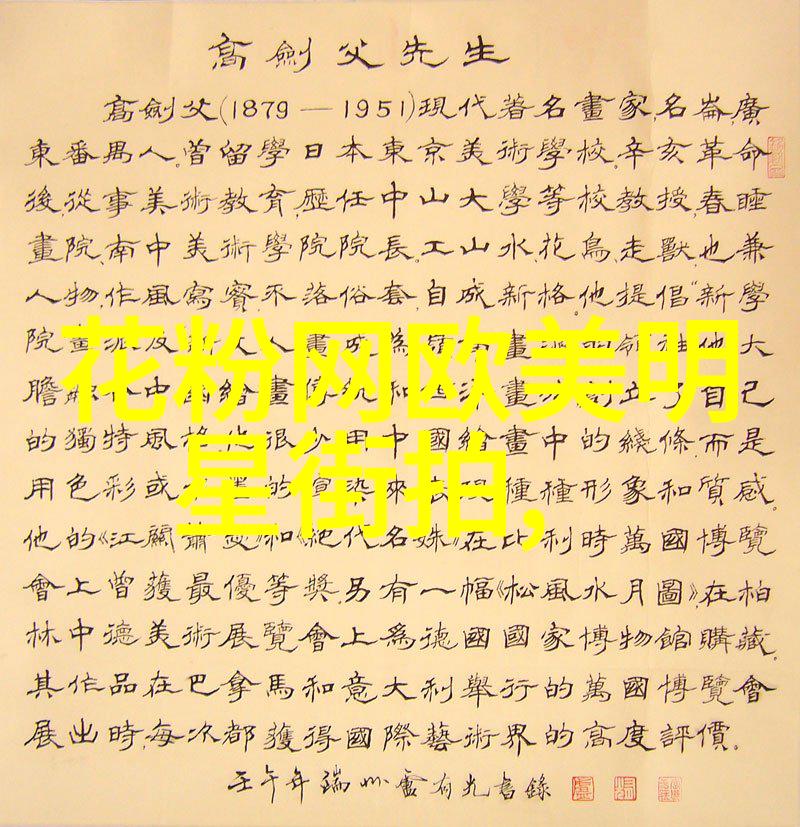 高劍父先生
高劍父(1879—1951)現代著名畫家,名崙,廣
東番禺人。曾留學日本東京美術學校,辛亥革命
後,從事美術教育,歷任中山大學等校教授,春睡
畫院,南中美術學院院長。工山水,花鳥,走獸,也兼
人物,作風寫實,不落俗套,自成新格。他提倡"新學
院畫派反文人畫成為畫領袖他大
花粉网欧美明
膽中國繪畫傳統和畫創立了自己
的獨特風格他很少用中國繪畫中的綫條,而是
星街拍,
用色彩或的渲染來表現種種形象和質感。
他的《江關蕭》和《絕代名姝》在比利時萬國博覽
會上曾獲最優等獎。另有一幅《松風水月圖》,在柏
林中德美術展覽會上為德國國家博物館購藏。
其作品在巴拿馬和意大利舉行的萬國博覽會
展出時,每次都獲得國際藝術界的高度評價。
壬午年瑞州盧有光書錄